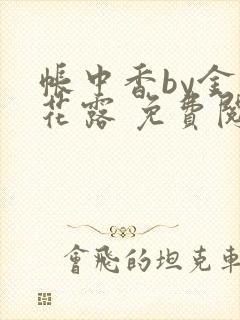 帳中香by金
花露 免費閱
會飛的坦克車